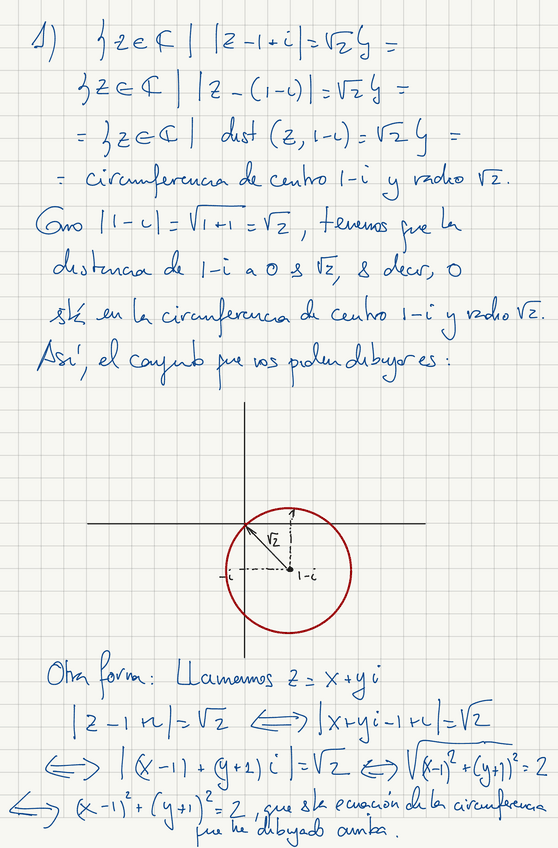 1) {z ∈ ℂ | |z-1+i| = √2} =
{z ∈ ℂ | |z-(1-i)| = √2} =
= {z ∈ ℂ | dist (z, 1-i) = √2} =
= circunferencia de centro 1-i y radio √2.
Como |1-i| = √1+1 = √2, tenemos que la
distancia de 1-i a 0 es √2, es decir, 0
está en la circunferencia de centro 1-i y radio √2.
Así, el conjunto que nos piden dibujar es:
√2
-i
1-i
Otra forma: Llamemos z = x+yi
|z-1+i| = √2 ⟺ |x+yi-1+i| = √2
⟺ |(x-1)+(y+1)i| = √2 ⟺ √(x-1)²+(y+1)² = 2
⟺ (x-1)²+(y+1)² = 2, que es la ecuación de la circunferencia
que he dibujado arriba.